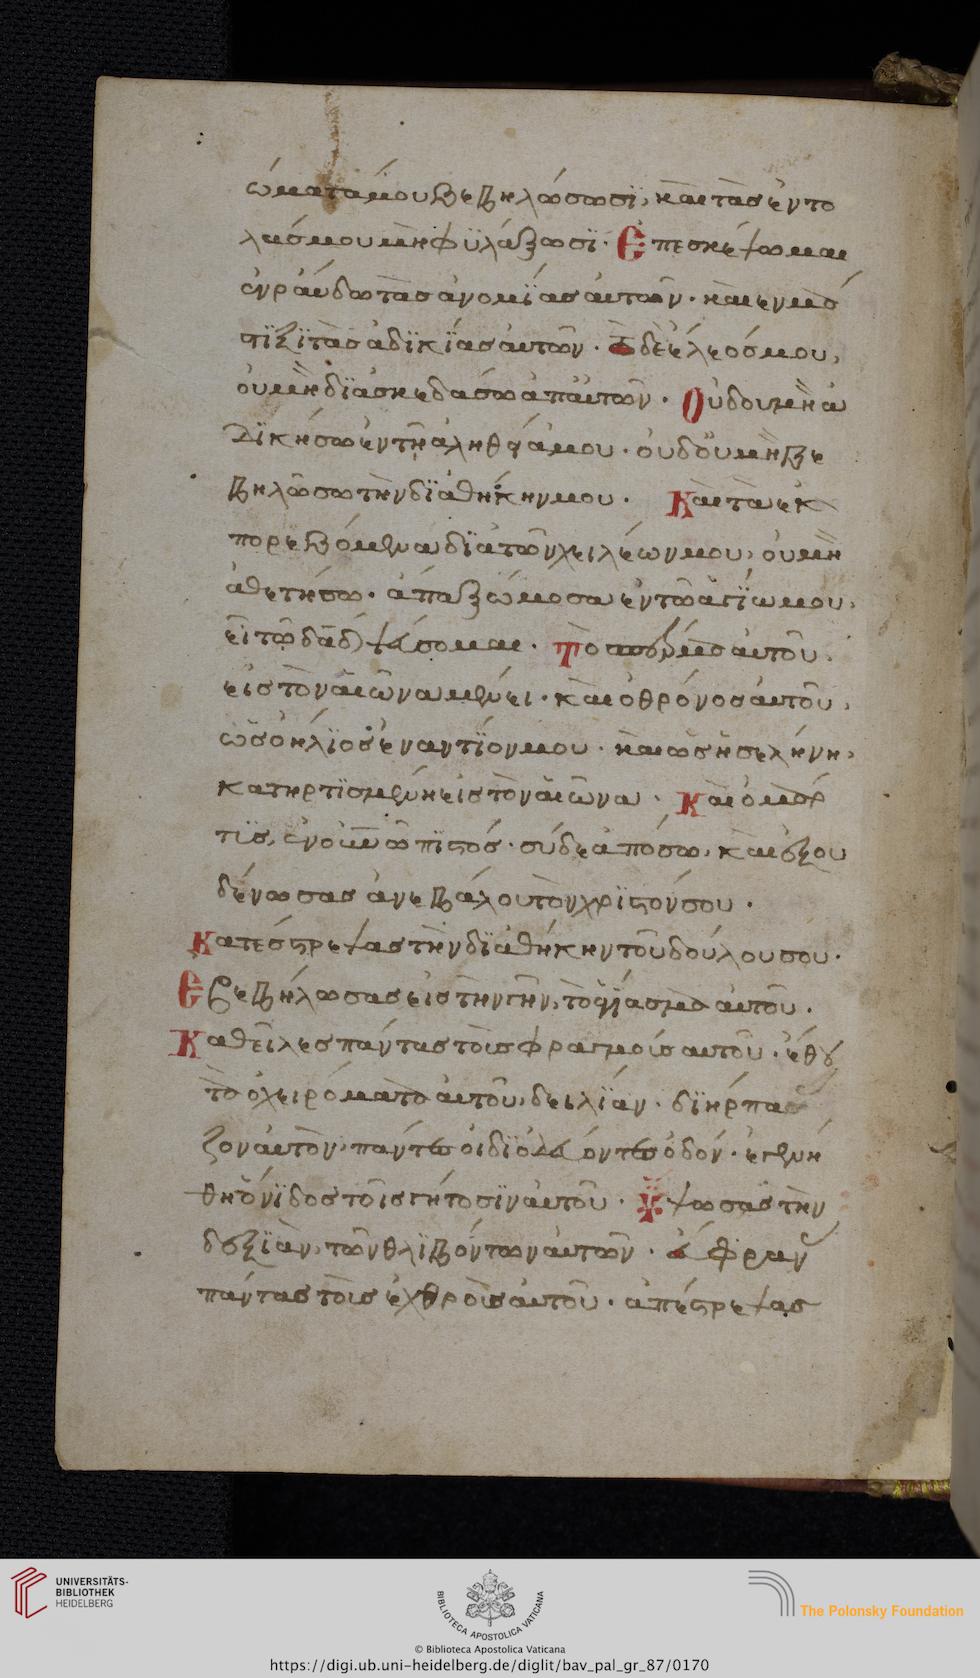 ώματά μου βεβηλώσωσϊ, καὶ τὰς ἐντο
λάς μου μὴ φϋλάξωσϊ· Ἐπεσκέψωμαι
ἐν ράυδω τὰς ἀνομϊας ἀυτῶν· καὶ ἐν μάσ
τϊξϊ τὰς ἀδϊκϊας ἀυτῶν· Τὸ δὲ ἔλεός μου,
ὀυ μὴ δϊασκεδάσω ἀπ ἀυτῶν· Οὐδου μὴ ἀ
δϊκήσω ἐν τῆ αληθεία μου· ὀυδ ὀυ μὴ βε
βηλώσω τὴν δϊαθήκην μου· Καὶ τὰ ἐκ
πορεβόμενα δϊὰ τῶν χειλέων μου, ὀυ μὴ
ἀθετήσω· ἅπαξ ὤμοσα ἐν τῶ ἁγϊω μου,
εῖ τῶ δᾱδ ψεύσομαι· Τὸ σπέρμα ἀυτοῦ
εἰς τὸν αἰῶνα μένει· καὶ ὁ θρόνος ἀυτοῦ,
ὡς ὁ ήλϊος ἐναντϊον μου· καὶ ὡς ἡ σελήνη,
κατηρτϊσμένη εἰς τὸν αἰῶνα· Καὶ ὁ μάρ
τϊς, ἐν οὐνω πϊςός· σύ δε ἀπόσω, καὶ ἐξου
δένωσας ἀνεβάλου τὸν χρϊςόν σου·
Κατέςρεψας τὴν δϊαθήκην τοῦ δούλου σου·
Εβεβήλωσας εἰς τὴν γῆν, τὸ ἁγίασμα ἀυτοῦ·
Καθεῖλες πάντας τοὶς φραγμοίς αυτοῦ· ἔθου
τὰ ὀχειρόματα ἀυτοῦ, δειλϊάν· δϊήρπα
ζον ἀυτὸν, πάντες ὁι δϊοδεύοντες ὁδόν· ἐγενή
θη ὄνϊδος τοῖς γήτοσϊν ἀυτοῦ· Ὕψωσας τὴν
δεξϊὰν, τῶν θλϊβόντων ἀυτῶν· ἐύφραν
πάντας τοὶς ἐχθροὶς ἀυτοῦ· ἀπέςρεψας
UNIVERSITÄTS-
BIBLIOTHEK
HEIDELBERG
BIBLIOTECA APOSTOLICA VATICANA
The Polonsky Foundation
© Biblioteca Apostolica Vaticana
https://digi.ub.uni-heidelberg.de/diglit/bav_pal_gr_87/0170